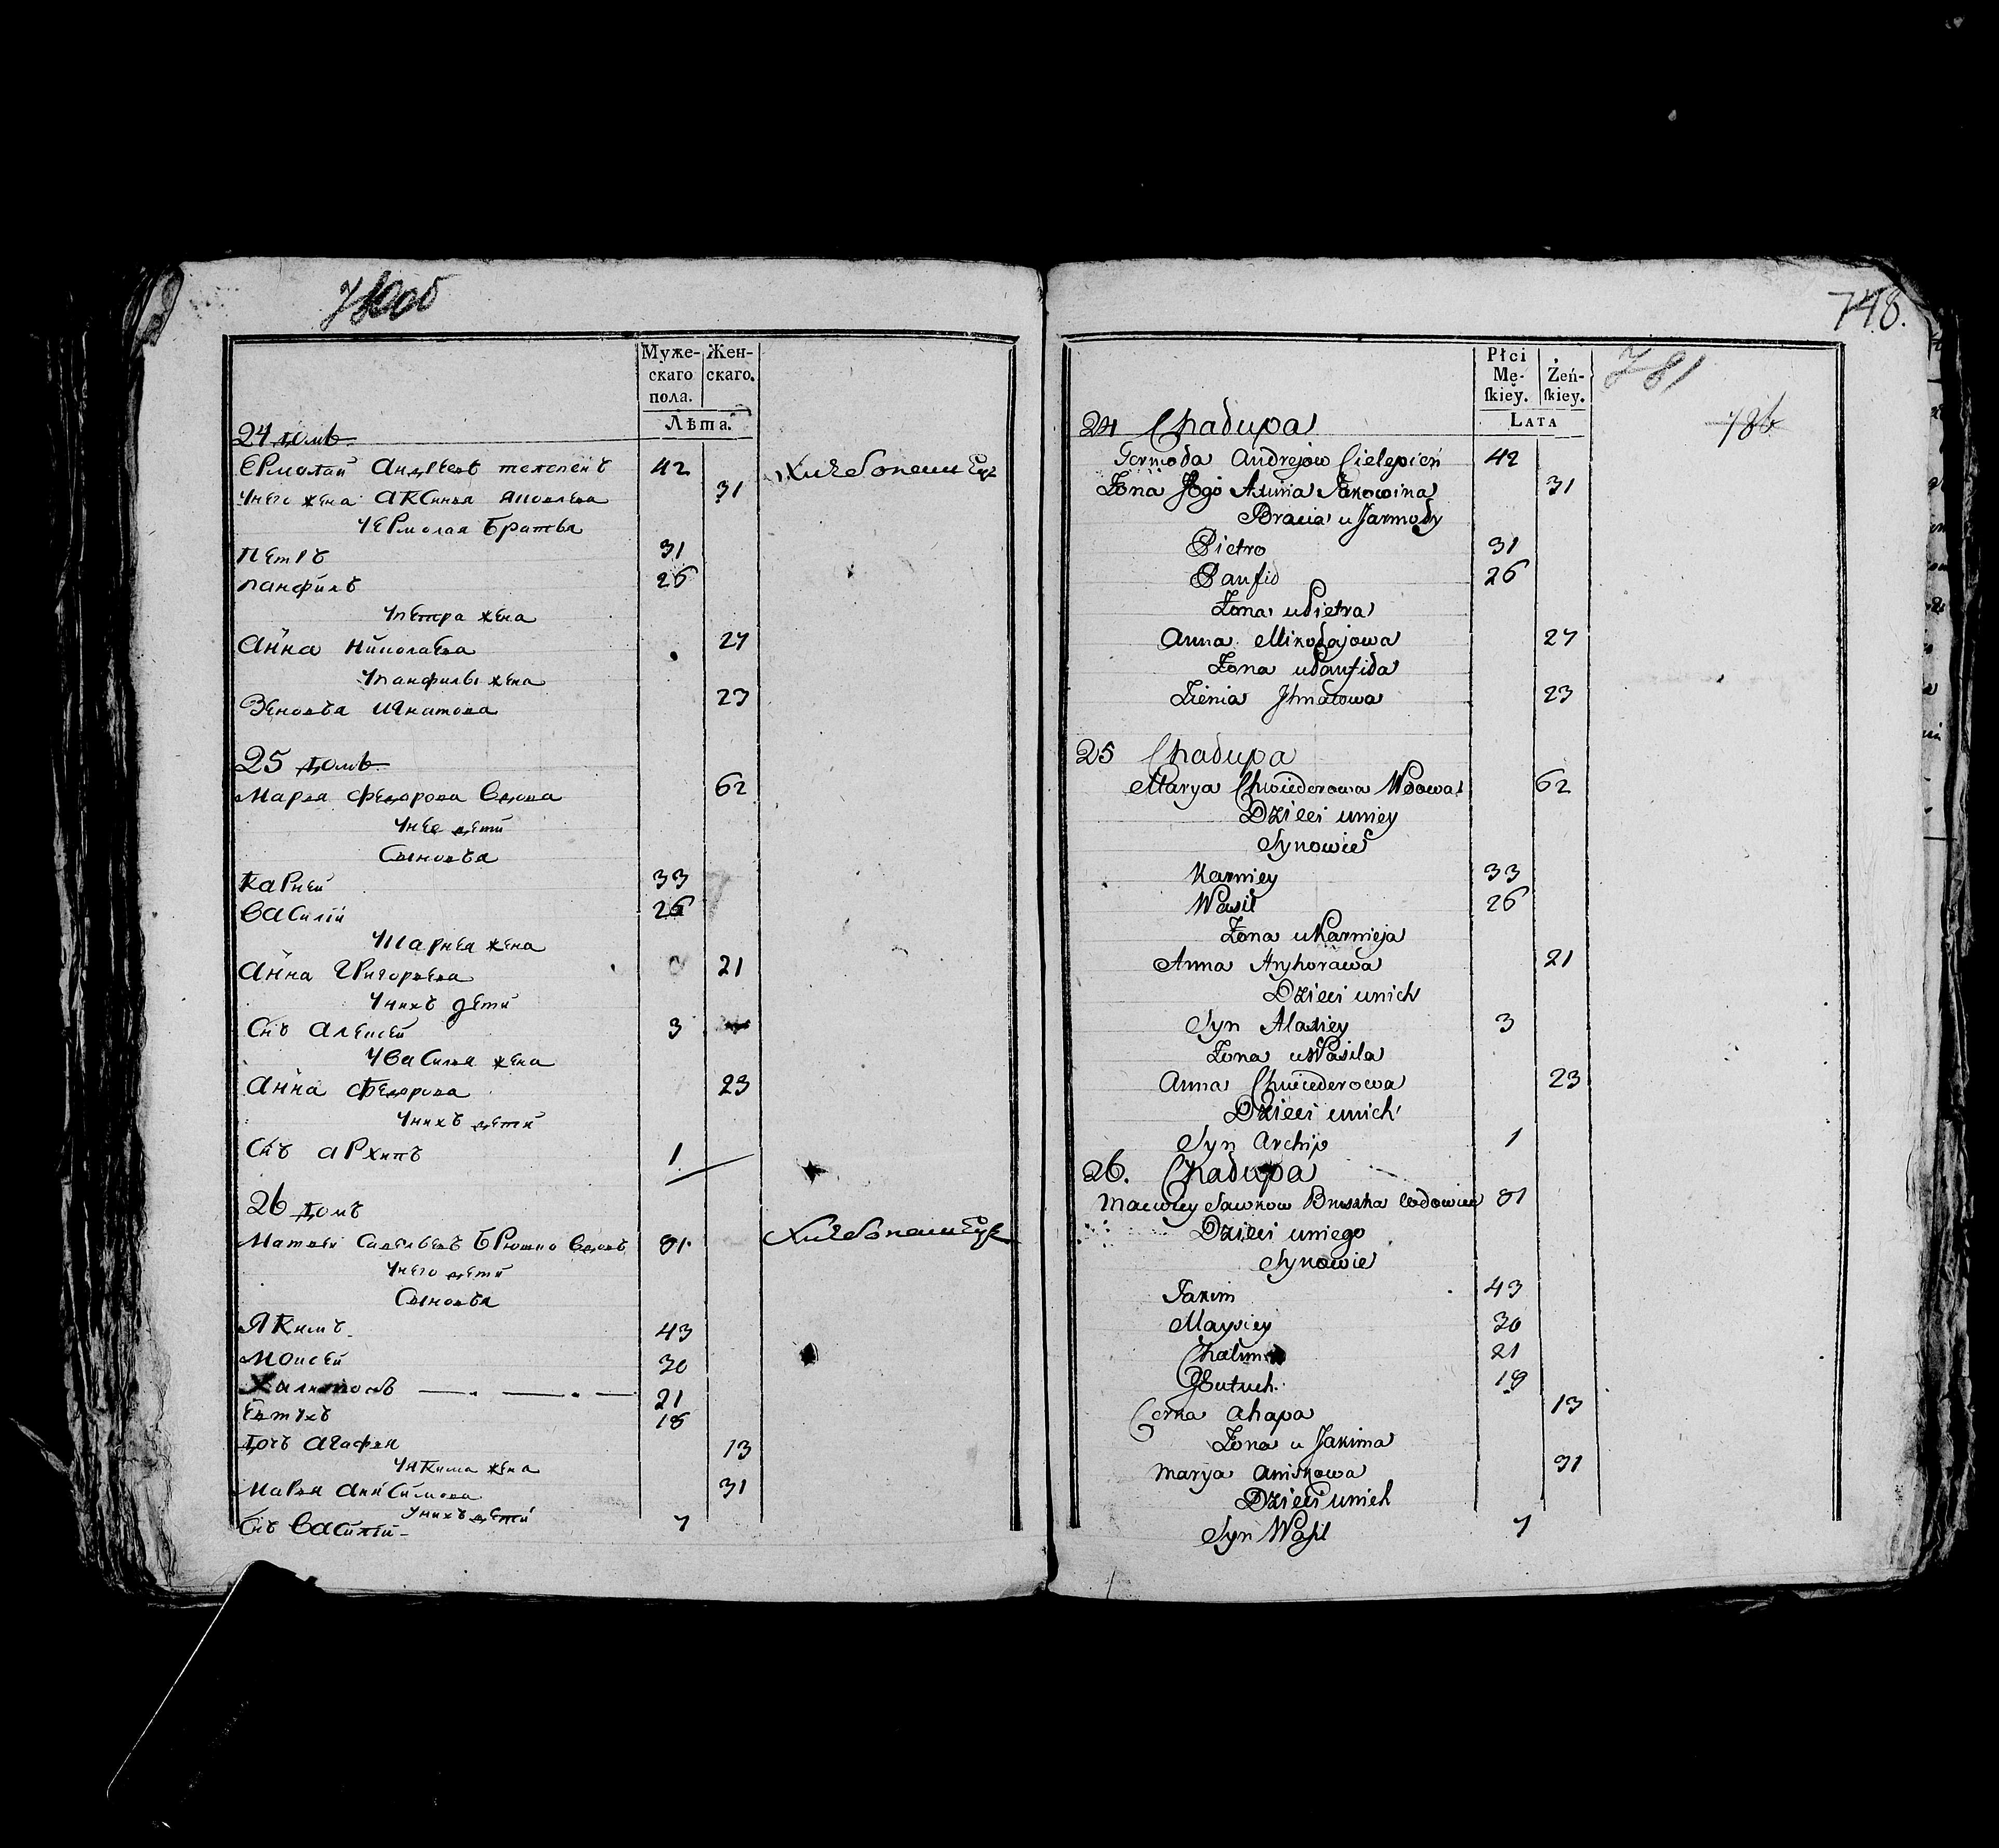 748.
781
786
Муже-
скаго
пола.
Жен-
скаго.
Лѣта.
24 домъ
Ермолай Андреевъ телепенъ 42
Унего жена аксинья яковлева 31
Уермолая братья
петръ 31
панфилъ 26
Упетра жена
анна николаева 27
Упанфилы жена
Зеновья игнатова 23
25 домъ
Марья федорова вдова 62
Унее дети
Сыновья
карней 33
василий 26
Укарнея жена
анна григорьева 21
Унихъ дети
Снъ алексей 3
Увасилья жена
анна федорова 23
Унихъ дети
Снъ архипъ 1
26 домъ
Матвей Савельевъ брюшко вдовъ 81
Унего дети
Сыновья
якимъ 43
моисей 30
21
Евтухъ 18
дочь агафья 13
Уякима жена
Марья анисимова 31
Унихъ дети
Снъ василий 7
Płci
Mę-
ſkiey.
Żeń-
ſkiey.
Lata
24 Chadupa
Jormoda Andrejow Cielepień 42
Żona Jego Axinia Jakowina 31
Bracia u Jarmody
Pietro 31
Panfid 26
Żona u Pietra
Anna Mikodajowa 27
Żona u Panfida
Zienia Ihnatowa 23
25 Chadupa
Marya Chwiederowa Wdowa 62
Dzieci uniey
Synowie
Karniey 33
Wasil 26
Żona u Karnieja
Anna Aryhorawa 21
Dzieci unich
Syn Alaxiey 3
Żona u Wasila
Anna Chwiederowa 23
Dzieci unich
Syn Archip 1
26. Chadupa
Maciwiey Sawkow Bruszka wdowiec 81
Dzieci uniego
Synowie
Jakim 43
Maysiey 30
21
18
Corka Ahapa 13
Żona u Jakima
Marya Aniskowa 31
Dzieci unich
Syn Wasil 7